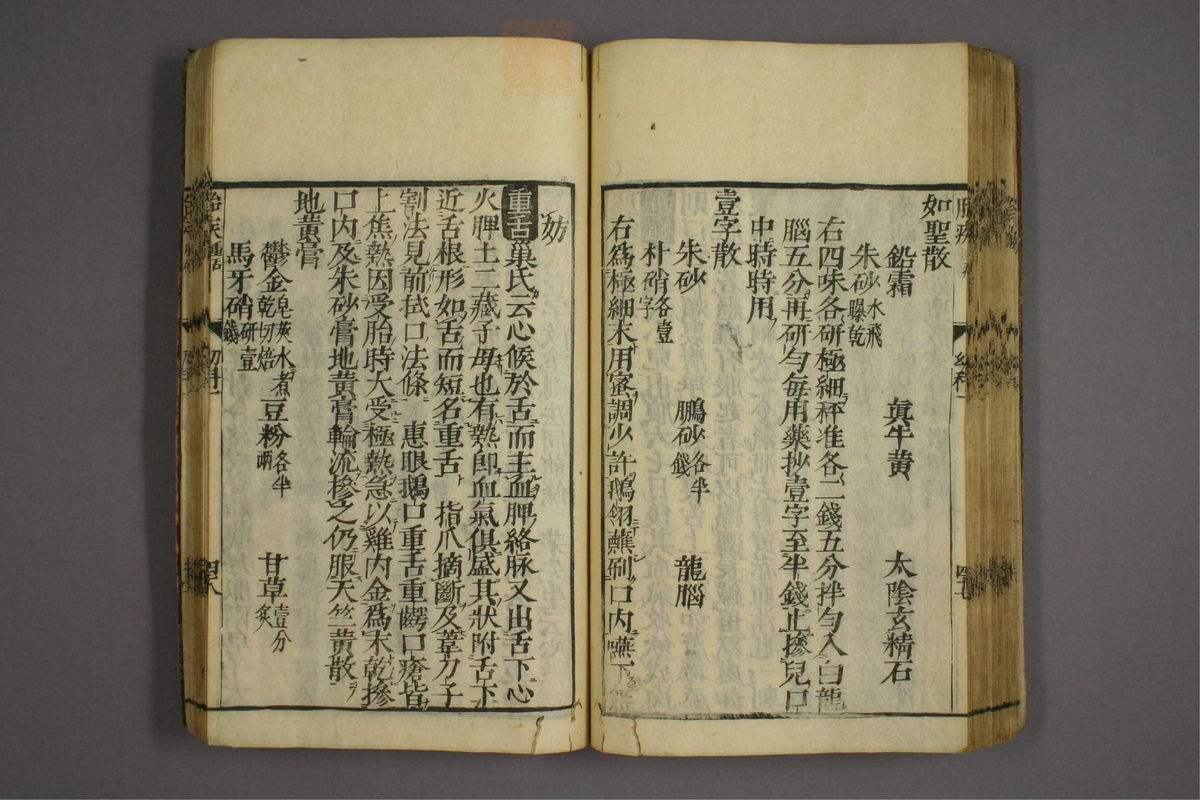 如聖散
鉛霜 眞牛黄 太陰玄精石
朱砂水飛曝乾
右四味各研極細秤准各二錢五分拌勻入白龍
腦五分再研勻每用藥抄壹字至半錢止摻兒口
中時時用
壹字散
朱砂 鵬砂各半錢 龍腦
朴硝各壹字
右為極細末用蜜調少許鵝翎蘸刷口內嚥下無
妨
重舌巢氏云心候於舌而主血脾絡脉又出舌下心
火脾土二藏子母也有熱即血氣俱盛其狀附舌下
近舌根形如舌而短名重舌 指爪摘斷及葦刀子
割法見前拭口法條 惠眼鵝口重舌重齶口瘡皆
上焦熱因受胎時大受極熱急以雞內金為末乾摻
口內及朱砂膏地黄膏輪流摻之仍服天竺黄散
地黄膏
鬱金皂莢水煮乾切焙 豆粉各半兩 甘草壹分炙
馬牙硝研壹錢
胎疾 重舌
幼科一
四八